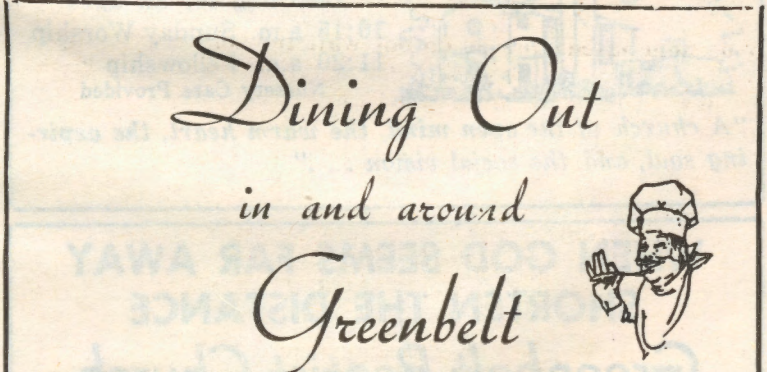 Dining Out
in and around
Greenbelt